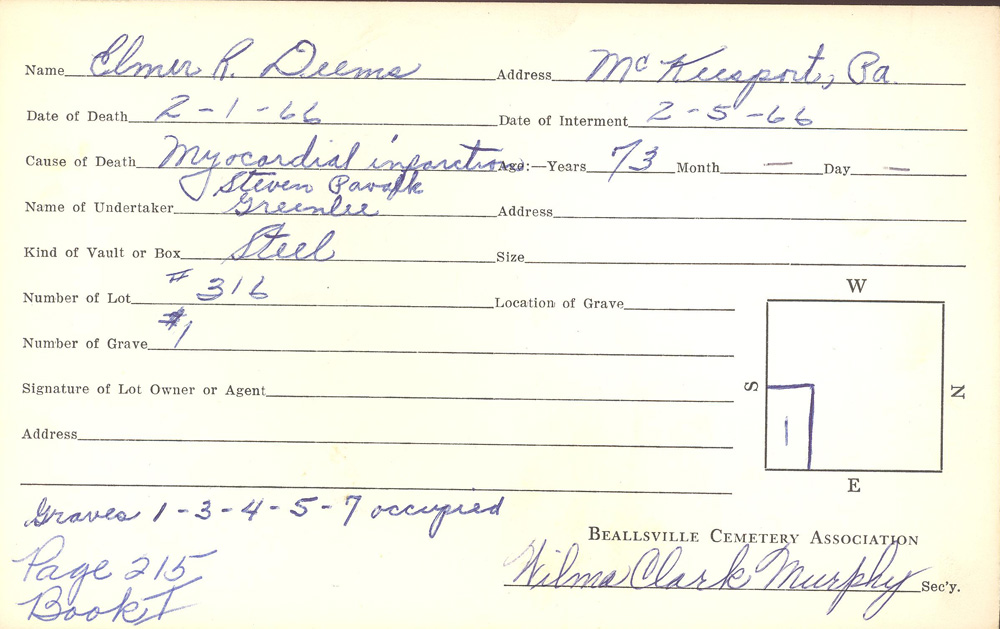 Name Elmer R. Deems Address McKeesport, Pa.
Date of Death 2-1-66 Date of Interment 2-5-66
Cause of Death Myocardial infarction Age:—Years 73 Month — Day —
Steven Pavalk
Name of Undertaker Greenlee Address
Kind of Vault or Box Steel Size
Number of Lot # 316 Location of Grave
W
Number of Grave #1
S N
Signature of Lot Owner or Agent
1
Address
E
Graves 1-3-4-5-7 occupied
Beallsville Cemetery Association
Page 215
Wilma Clark Murphy Sec'y.
Book I